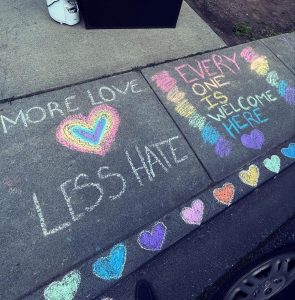 MORE LOVE
LESS HATE
EVERY
ONE IS
WELCOME
HERE